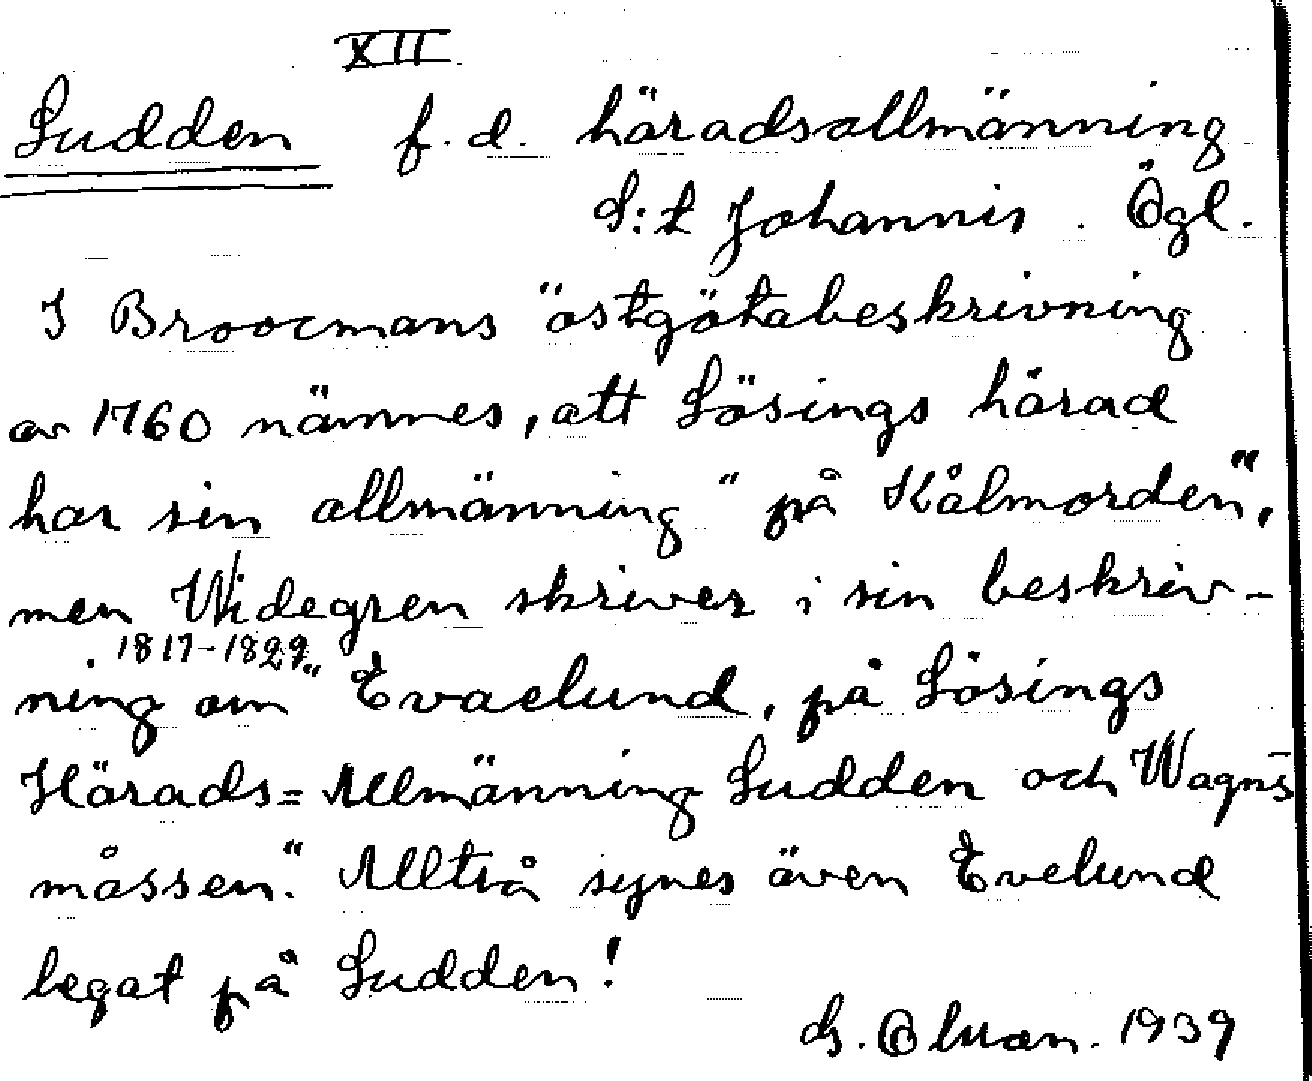 XII
Sudden f. d. häradsallmänning
S:t Johannis. Ögl.
I Broocmans östgötabeskrivning
av 1760 nämnes, att Lösings härad
har sin allmänning "på Kålmorden",
men Widegren skriver i sin beskriv-
1817-1829
ning om "Evaelund, på Lösings
Härads=Allmänning Sudden och Wagns-
måssen." Alltså synes även Evelund
legat på Sudden!
G. 1939